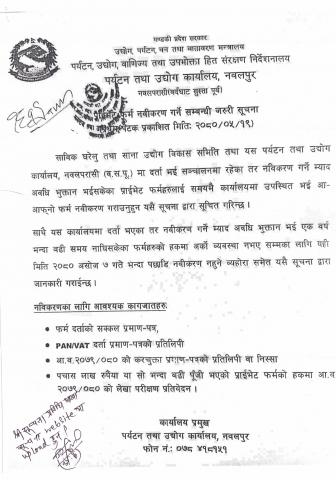 गण्डकी प्रदेश सरकार
उद्योग, पर्यटन, वन तथा वातावरण मन्त्रालय
पर्यटन, उद्योग, वाणिज्य तथा उपभोक्ता हित संरक्षण निर्देशनालय
पर्यटन तथा उद्योग कार्यालय, नवलपुर
नवलपरासी(बर्दघाट सुस्ता पूर्व)
फर्म नविकरण गर्ने सम्बन्धी जरुरी सूचना
प्रकाशित मिति: २०८०/०५/१९)
साविक घरेलु तथा साना उद्योग विकास समिति तथा यस पर्यटन तथा उद्योग
कार्यालय, नवलपरासी (ब.स.पू.) मा दर्ता भई सञ्चालनमा रहेका तर नविकरण गर्ने म्याद
अवधि भुक्तान भईसकेका प्राईभेट फर्महरुलाई समयमै कार्यालयमा उपस्थित भई आ-
आफ्नो फर्म नवीकरण गराउनुहुन यसै सूचना द्वारा सूचित गरिन्छ ।
साथै यस कार्यालयमा दर्ता भएका तर नवीकरण गर्ने म्याद अवधि भुक्तान भई एक वर्ष
भन्दा बढी समय नाघिसकेका फर्महरुको हकमा अर्को व्यवस्था नभए सम्मका लागि यही
मिति २०८० असोज ७ गते भन्दा पछाडि नवीकरण नहुने व्यहोरा समेत यसै सूचना द्वारा
जानकारी गराईन्छ ।
नविकरणका लागि आवश्यक कागजातहरु:
• फर्म दर्ताको सक्कल प्रमाण-पत्र,
• PAN/VAT दर्ता प्रमाण-पत्रको प्रतिलिपी
• आ.व.२०७९/०८० को करचुक्ता प्रमाण-पत्रको प्रतिलिपी वा निस्सा
• पचास लाख रुपैया वा सो भन्दा बढी पूँजी भएको प्राईभेट फर्मको हकमा आ.व
२०७९/०८० को लेखा परीक्षण प्रतिवेदन ।
कार्यालय प्रमुख
पर्यटन तथा उद्योग कार्यालय, नवलपुर
फोन नं.: ०७८ ५१८१५१
website मा
upload